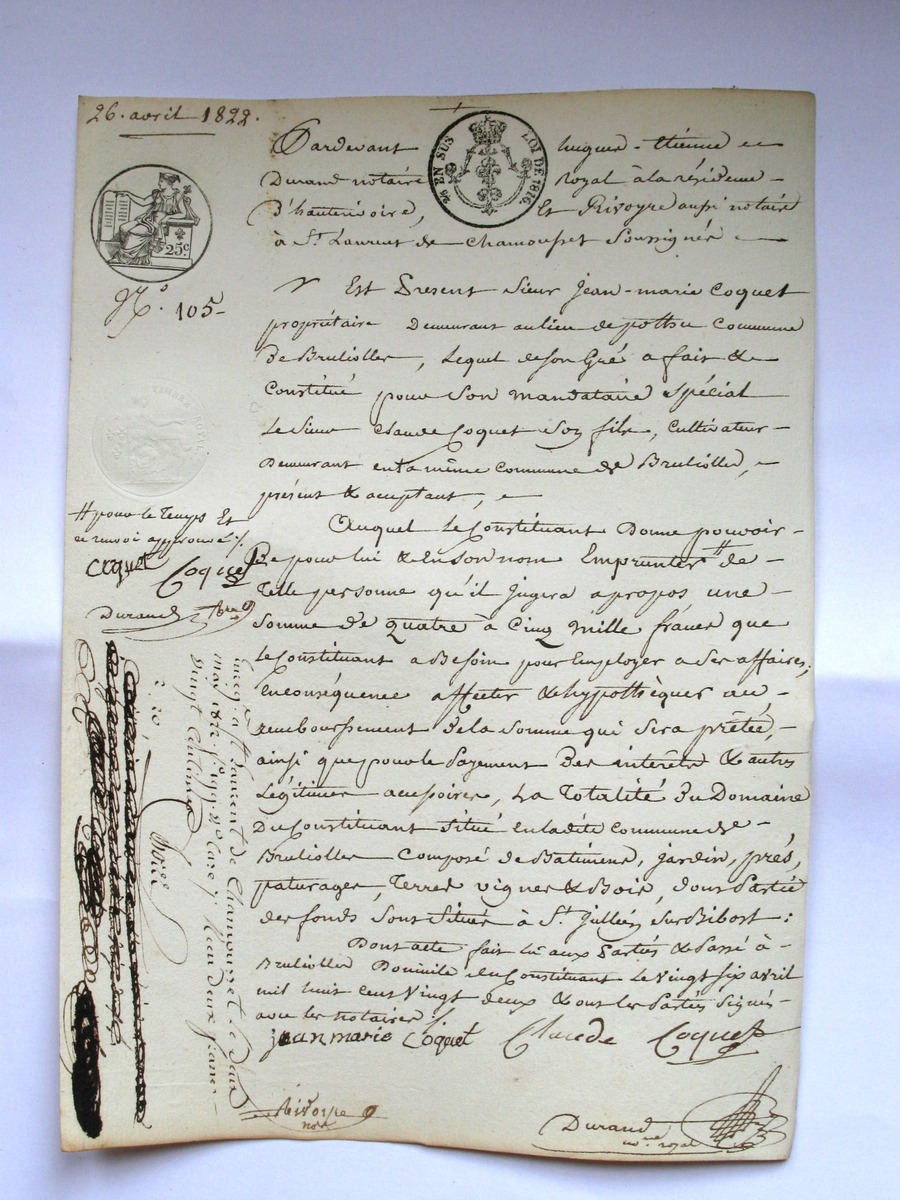 26. avril 1822.
2/6 EN SUS LOI DE 1816.
25c
N°. 105-
Pardevant hugues-étienne
Durand notaire royal à la résidence
D'hauterivoire, Et Rivoyre aussi notaire
à St. Laurent de Chamousset Soussignés
Est Présent Sieur Jean-marie Coquet
propriétaire Demeurant au lieu de Commune
De Brulioller, Lequel de son Gré a fait &
Constitué pour Son mandataire Spécial
Le Sieur Claude Coquet Son fils, Cultivateur
Demeurant en la même Commune de Brulioller,
présent & acceptant,
Auquel le Constituant Donne pouvoir
De pour lui & en Son nom Emprunter # de
Telle personne qu'il Jugera apropos une
Somme de quatre à Cinq mille francs que
le Constituant a Besoin pour Employer a Ses affaires;
En conséquence affecter & hypothéquer au
remboursement De la Somme qui Sera prêtée,
ainsi que pour le Payement Des intérêts & autres
Légitimes accessoires, La Totalité Du Domaine
Du Constituant Situé en ladite Commune de
Brulioller Composé de Batiments, Jardin, prés,
paturages, Terres vignes & Bois, dont Partie
des fonds Sont Situés à St. Jullien Sur Bibost :
Dont acte fait lu aux Parties & Passé à
Brulioller Domicile du Constituant le Vingt Six avril
mil huit Cent Vingt deux & ont les Parties Signés
avec les notaires
jean marie Coquet Claude Coquet
Rivoyre
not.
Durand
nore royal
# pour le Temps Et
ce renvoi approuvé
Coquet Coquet
Durand
Enregistré à St Laurent de Chamousset le Deux
mai 1822. Reçu deux francs
vingt Centimes